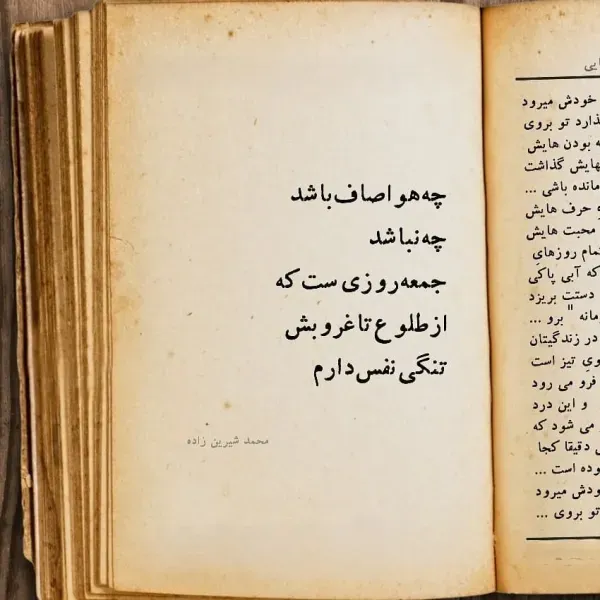 چه هوا صاف باشد
چه نباشد
جمعه روزی ست که
از طلوع تا غروبش
تنگی نفس دارم
محمد شیرین زاده
خودش میرود
تو بروی
بودن هایش
گذاشت
مانده باشی ...
حرف هایش
محبت هایش
روزهای
که آبی پاکی
دستت بریزد
" برو ...
در زندگیتان
تیز است
فرو می رود
و این درد
می شود که
دقیقا کجا
است ...
میرود
تو بروی ...